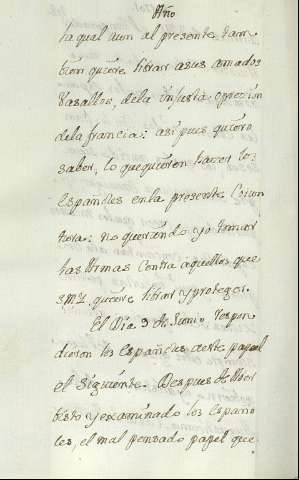 Año
la qual aun al presente tam-
bien quiere librar a sus amados
Vasallos, dela injusta opresion
dela francia: asi pues quiero
saber, lo que quieren hacer los
españoles en la presente Coiun
tura: no queriendo yo tomar
las Armas contra aquellos que
S.M.Y. quiere librar y proteger.
El Dia 9 de Junio respon
dieron los españoles a este papel
el siguiente. Despues de Aber
bisto y examinado los españo
les, el mal pensado papel que